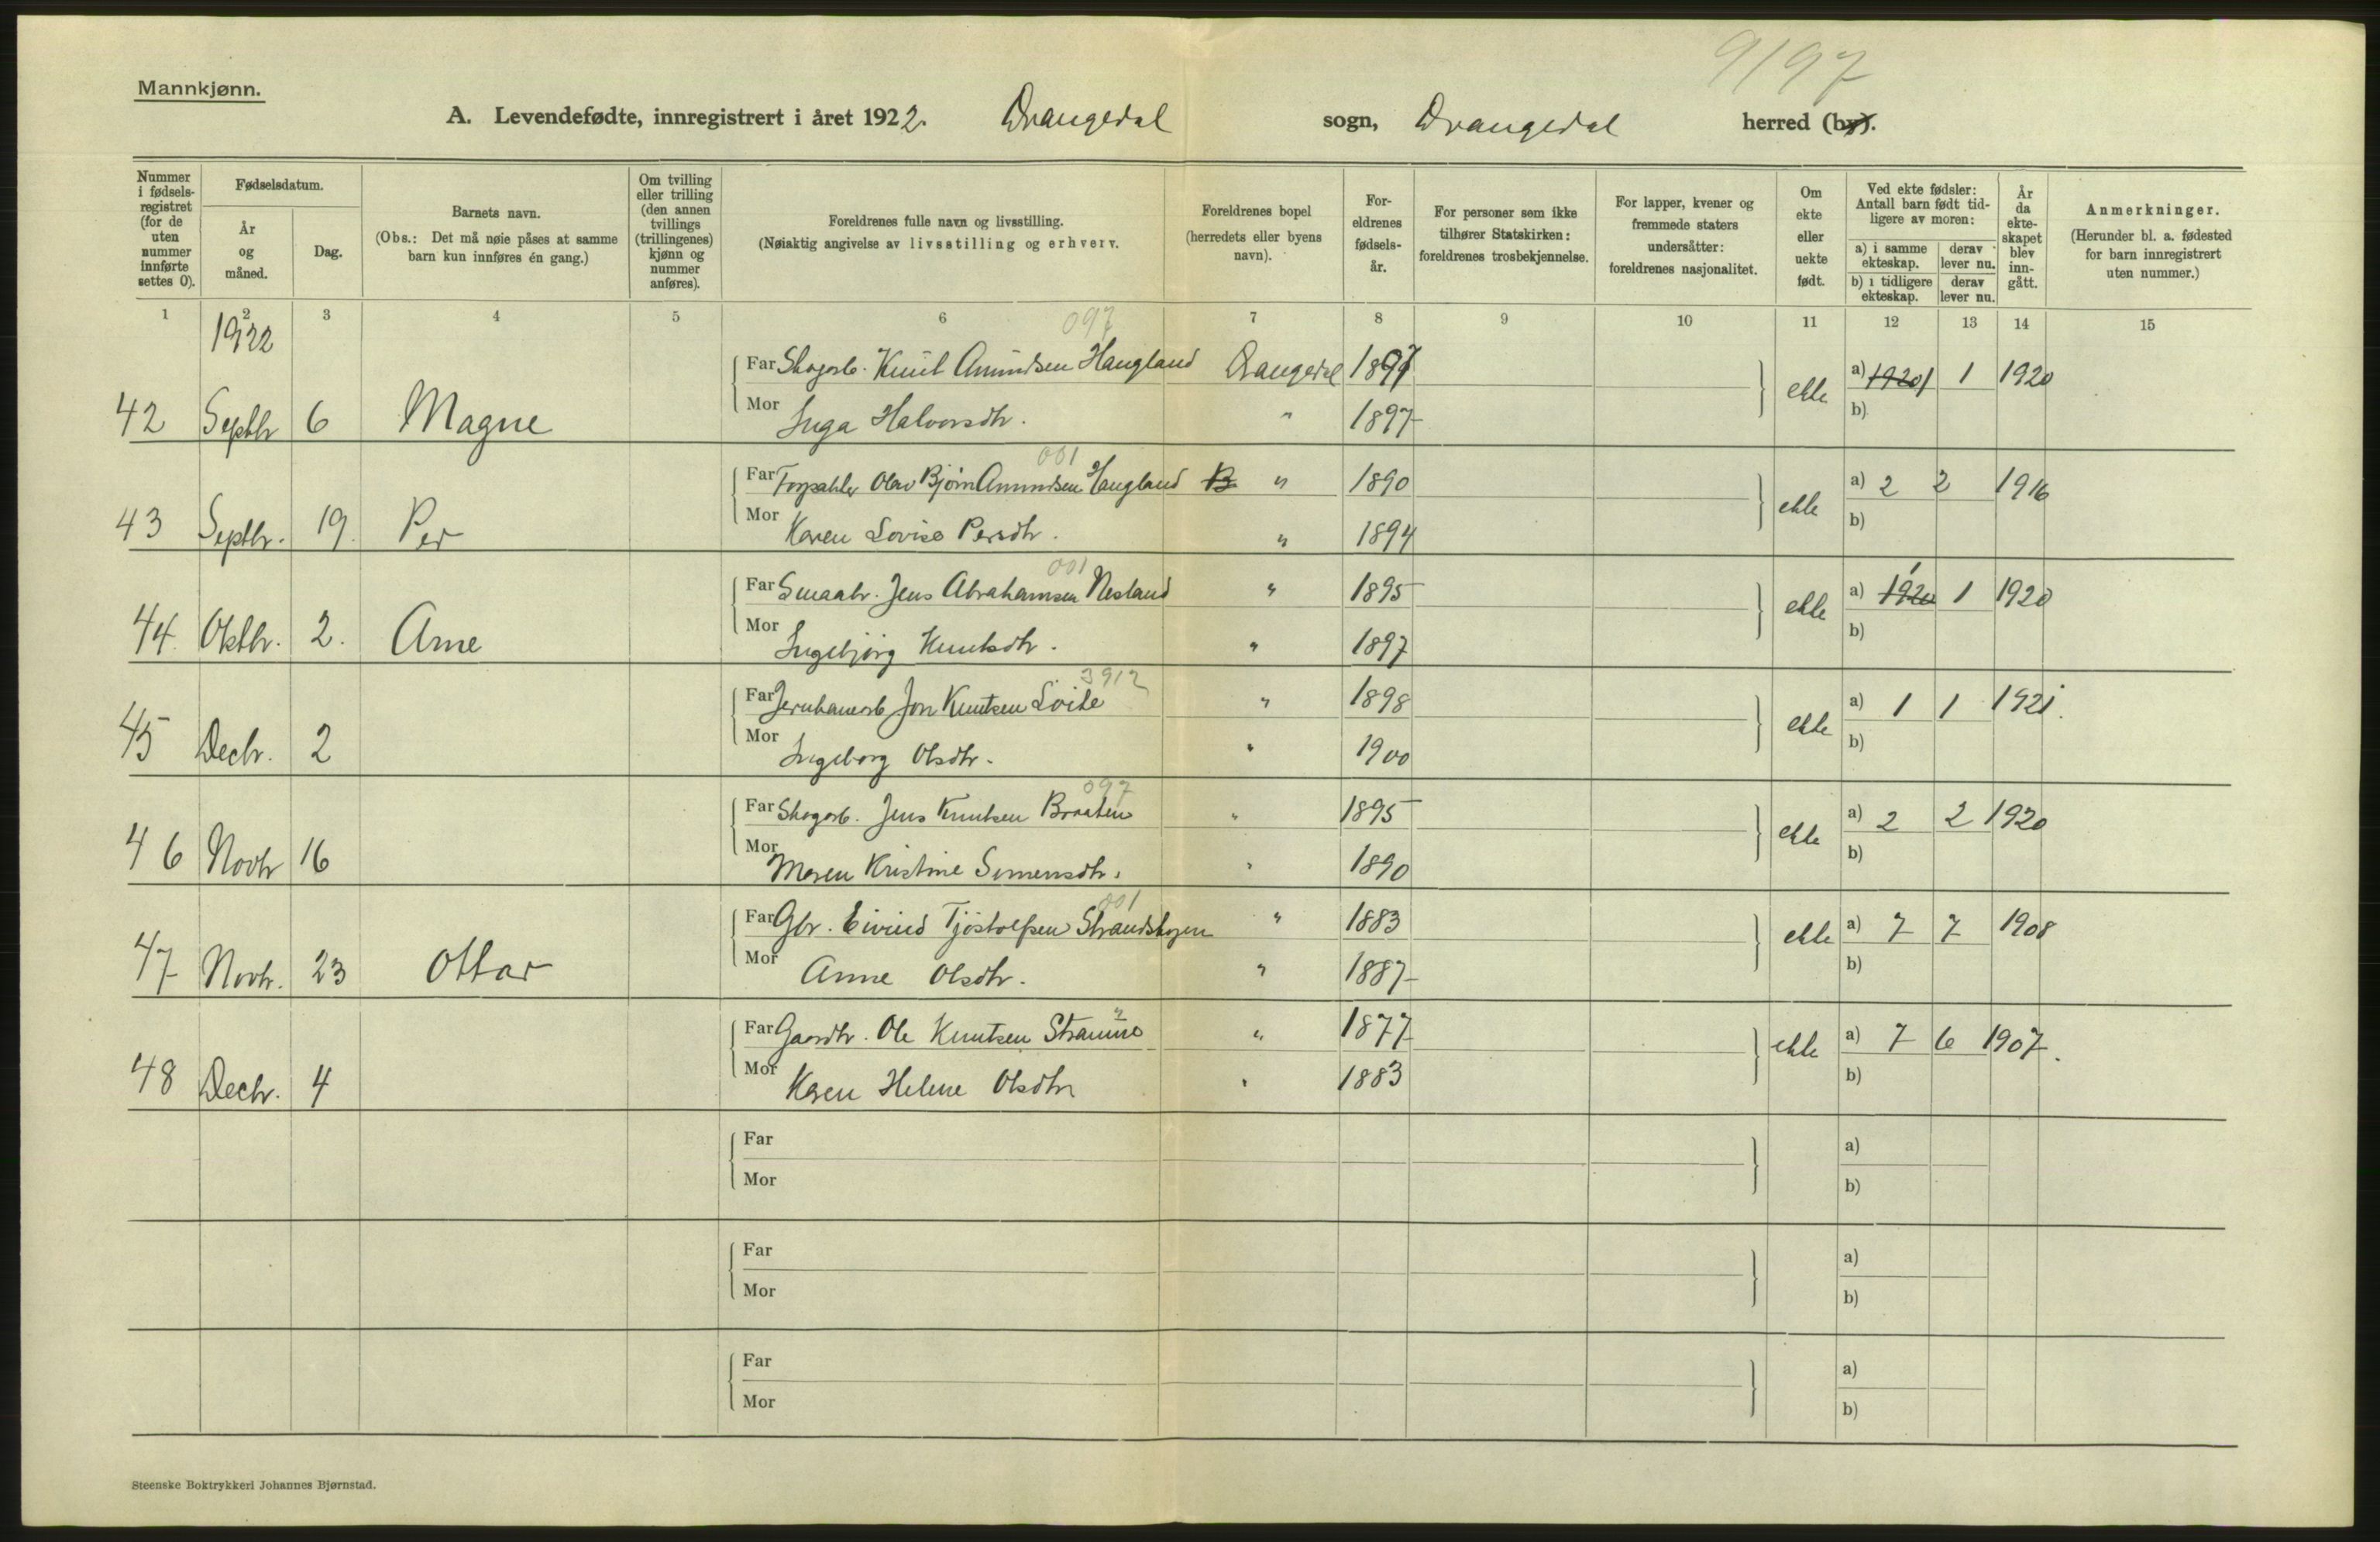 9/97
Mannkjønn.
A. Levendefødte, innregistrert i året 1922. Drangedal sogn, Drangedal herred (by).
Nummer i fødsels-registret (for de uten nummer innførte settes 0).
Fødselsdatum.
År og måned.
Dag.
Barnets navn.
(Obs.: Det må nøie påses at samme barn kun innføres én gang.)
Om tvilling eller trilling (den annen tvillings (trillingenes) kjønn og nummer anføres).
Foreldrenes fulle navn og livsstilling.
(Nøiaktig angivelse av livsstilling og erhverv.
Foreldrenes bopel (herredets eller byens navn).
For-eldrenes fødsels-år.
For personer som ikke tilhører Statskirken: foreldrenes trosbekjennelse.
For lapper, kvener og fremmede staters undersåtter: foreldrenes nasjonalitet.
Om ekte eller uekte født.
Ved ekte fødsler: Antall barn født tid-ligere av moren:
a) i samme ekteskap.
derav lever nu.
b) i tidligere ekteskap.
derav lever nu.
År da ekte-skapet blev inn-gått.
Anmerkninger.
(Herunder bl. a. fødested for barn innregistrert uten nummer.)
1 2 3 4 5 6 7 8 9 10 11 12 13 14 15
1922
097
Far Skogarb. Knut Amundsen Haugland Drangedal 1897 ekte a) 1920 1 1 1920
42 Septbr 6 Magne Mor Inga Halvorsdtr. " 1897 b)
001
Far Olav Bjørn Amundsen Haugland B " 1890 ekte a) 2 2 1916
43 Septbr. 19. Per Mor Karen Lovise Persdtr. " 1894 b)
001
Far Smaabr. Jens Abrahamsen Nesland " 1895 ekte a) 1920 1 1 1920
44. Oktbr. 2. Arne Mor Ingebjørg Knutsdtr. " 1897 b)
3912
Far Jernbanearb Jon Knutsen Löite " 1898 ekte a) 1 1 1921.
45 Decbr. 2 Mor Ingeborg Olsdtr. " 1900 b)
097
Far Skogarb. Jens Knutsen Braaten " 1895 ekte a) 2 2 1920
46 Novbr 16 Mor Maren Kristine Simensdtr. " 1890 b)
001
Far Gbr. Eivind Tjöstolfsen Strandskogen " 1883 ekte a) 7 7 1908
47 Novbr. 23 Ottar Mor Anne Olsdtr. " 1887 b)
"
Far Gaardbr. Ole Knutsen Stranne " 1877 ekte a) 7 6 1907.
48 Decbr. 4 Mor Karen Helene Olsdtr " 1883 b)
Far a)
Mor b)
Far a)
Mor b)
Far a)
Mor b)
Steenske Boktrykkeri Johannes Bjørnstad.